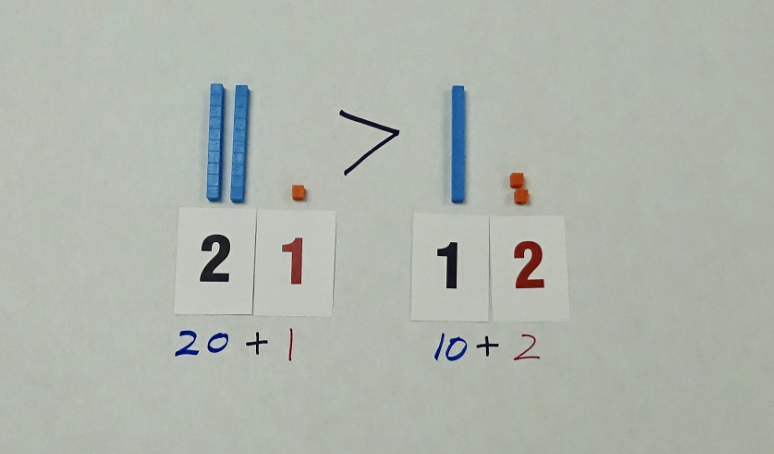 >
2 1 1 2
20 + 1 10 + 2